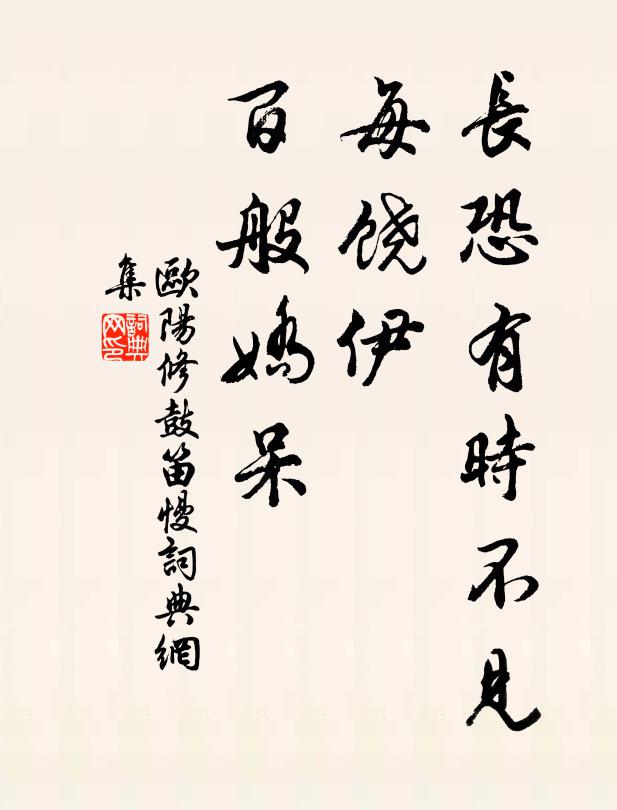 長恐有時不見
每饒伊
百般嬌呆
歐陽修鼓笛慢詞典網
集
詞典
网印